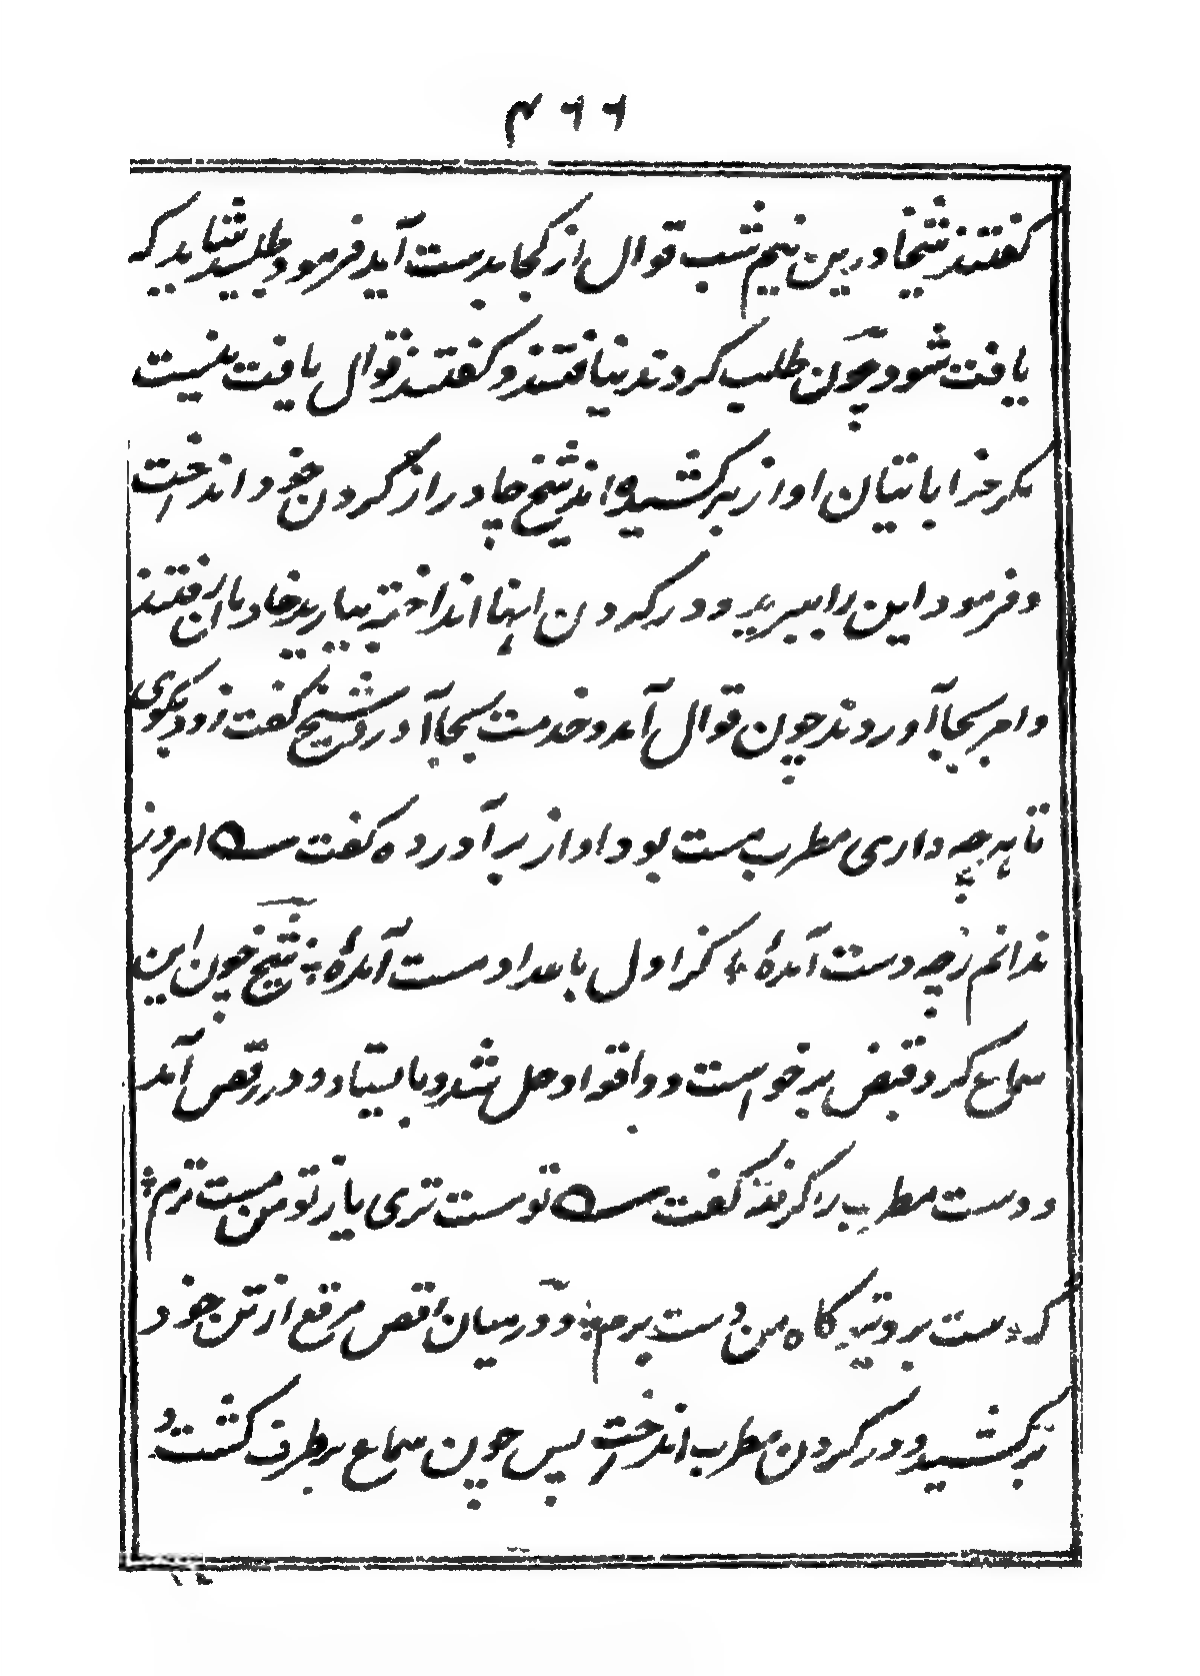 ۴۶۶
کفتند شیخا درین نیم شب قوال از کجا بدست آید فرمود طلبید شاید که
یافت شود چون طلب کردند نیافتند و کفتند قوال یافت نیست
مکر خراباتیان اواز برکشیده اند شیخ چادر از کردن خود انداخت
و فرمود این را ببرید و در کردن اینها انداخته بیارید خادمان رفتند
و امر بجا آوردند چون قوال آمد و خدمت بجا آورد شیخ کفت زود بکوی
تا بهر چه داری مطرب مست بود اواز برآورده کفت امروز
ندانم زچه دست آمدهٔ * کز اول بامداد مست آمدهٔ * شیخ چون این
سماع کرد قبض برخواست و وا قواد حل شد و بایستاد و در رقص آمد
و دست مطرب را کرفته کفت تو مست تری یا ز تو من مست ترم *
کر * مست بر وتیه کاه من دست برم * و در میان رقص مرقع از تن خود
برکشید و در کردن مطرب انداخت پس چون سماع برطرف کشت و